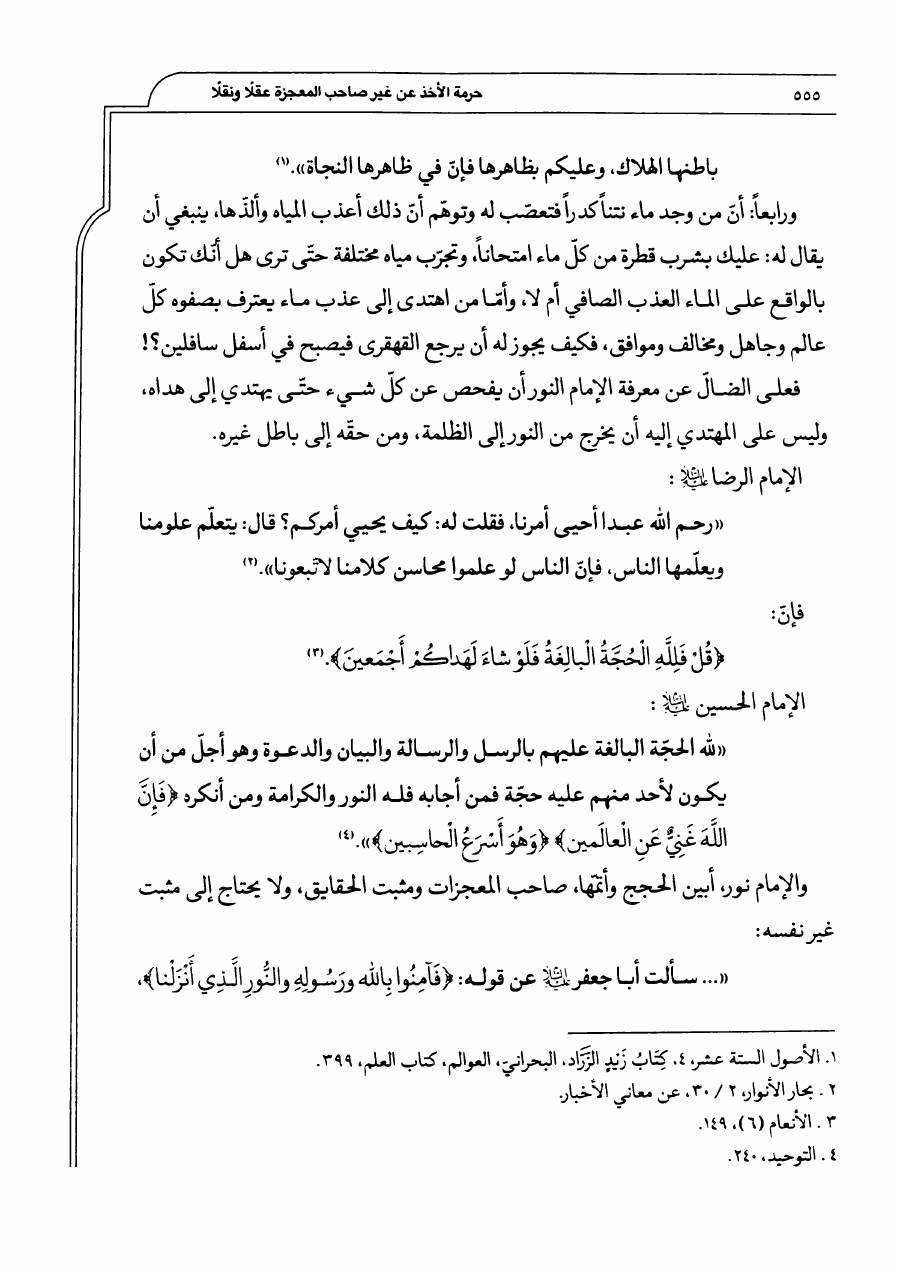 ٥٥٥ حرمة الأخذ عن غير صاحب المعجزة عقلًا ونقلًا
باطنها الهلاك، وعليكم بظاهرها فإنّ في ظاهرها النجاة».(١)
ورابعاً: أنّ من وجد ماء نتناً كدراً فتعصّب له وتوهّم أنّ ذلك أعذب المياه وألذّها، ينبغي أن
يقال له: عليك بشرب قطرة من كلّ ماء امتحاناً، وتجرّب مياه مختلفة حتّى ترى هل أنّك تكون
بالواقع على الماء العذب الصافي أم لا، وأمّا من اهتدى إلى عذب ماء يعترف بصفوه كلّ
عالم وجاهل ومخالف وموافق، فكيف يجوز له أن يرجع القهقرى فيصبح في أسفل سافلين؟!
فعلى الضالّ عن معرفة الإمام النور أن يفحص عن كلّ شيء حتّى يهتدي إلى هداه،
وليس على المهتدي إليه أن يخرج من النور إلى الظلمة، ومن حقّه إلى باطل غيره.
الإمام الرضا عليه السلام :
«رحم الله عبدا أحيى أمرنا، فقلت له: كيف يحيي أمركم؟ قال: يتعلّم علومنا
ويعلّمها الناس، فإنّ الناس لو علموا محاسن كلامنا لاتّبعونا».(٢)
فإنّ:
﴿قُلْ فَلِلَّهِ الْحُجَّةُ الْبالِغَةُ فَلَوْ شاءَ لَهَداكُمْ أَجْمَعينَ﴾.(٣)
الإمام الحسين عليه السلام :
«لله الحجّة البالغة عليهم بالرسل والرسالة والبيان والدعوة وهو أجلّ من أن
يكون لأحد منهم عليه حجّة فمن أجابه فله النور والكرامة ومن أنكره ﴿فَإِنَّ
اللَّهَ غَنِيٌّ عَنِ الْعالَمين﴾ ﴿وَهُوَ أَسْرَعُ الْحاسِبين﴾».(٤)
والإمام نور، أبين الحجج وأتمّها، صاحب المعجزات ومثبت الحقايق، ولا يحتاج إلى مثبت
غير نفسه:
«... سألت أبا جعفر عليه السلام عن قوله: ﴿فَآمِنُوا بِالله ورَسُولِهِ والنُّورِ الَّذِي أَنْزَلْنا﴾،
١. الأصول الستة عشر، ٤، كِتَابُ زَيْدٍ الزَّرَّاد، البحرانيّ، العوالم، كتاب العلم، ٣٩٩.
٢. بحار الأنوار، ٢ / ٣٠، عن معاني الأخبار.
٣. الأنعام (٦)، ١٤٩.
٤. التوحيد، ٢٤٠.